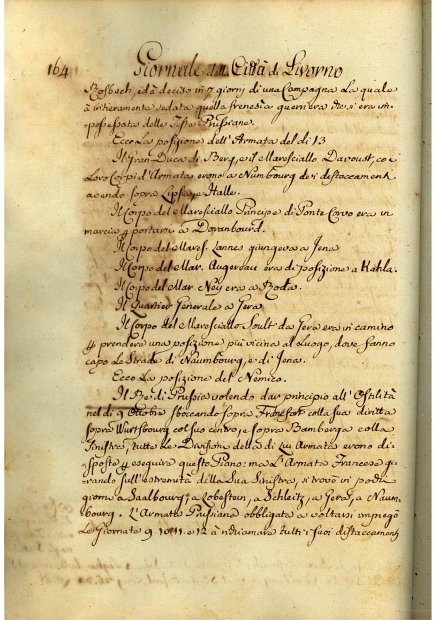 164 Giornale della Città di Livorno
Rosbech, ed à deciso in 7 giorni di una Campagna La quale
à intieramente sedata quella frenesia guerriera che si era im-
possessata delle Teste Prussiane.
Ecco La posizione dell'Armata del di 13
Il Gran-Duca di Berg, e il Maresciallo Davoust, co i
Loro Corpi d'Armata erono a Numbourg de i distaccamenti
avendo sopra Lipsia e Halle.
Il Corpo del Maresciallo Principe di Ponte Corvo era in
marcia p portarsi a Doranbourd.
Il Corpo del Mares. Lannes giungeva a Jena
Il Corpo del Mar. Augereau era di posizione a Kahla.
Il Corpo del Mar. Neij era a Roda.
Il Quartier Generale a Gera
Il Corpo del Maresciallo Soult da Gera era in camino
p prendere una posizione più vicina al Luogo, dove fanno
capo Le Strade di Naumbourg, e di Jena.
Ecco La posizione del Nemico.
Il Rè di Prussia volendo dar principio all'Ostilità
nel di 9 Ottobre sboccando sopra Francfort colla sua diritta
sopra Wurtsbourg col suo centro, e sopra Bamberga colla
Sinistra, tutte Le Divisioni della di Lui Armata erono di-
sposte p eseguire questo Piano: ma L'Armata Francese gi-
rando sull'estremità della Sua Sinistra, si trovò in pochi
giorni a Saalbourg, a Lobestein, a Schleitz, a Gera, a Naum-
bourg. L'Armata Prussiana obbligata a voltarsi impiegò
Le Giornate 9 10. 11. e 12 à richiamare tutti i suoi distaccamenti